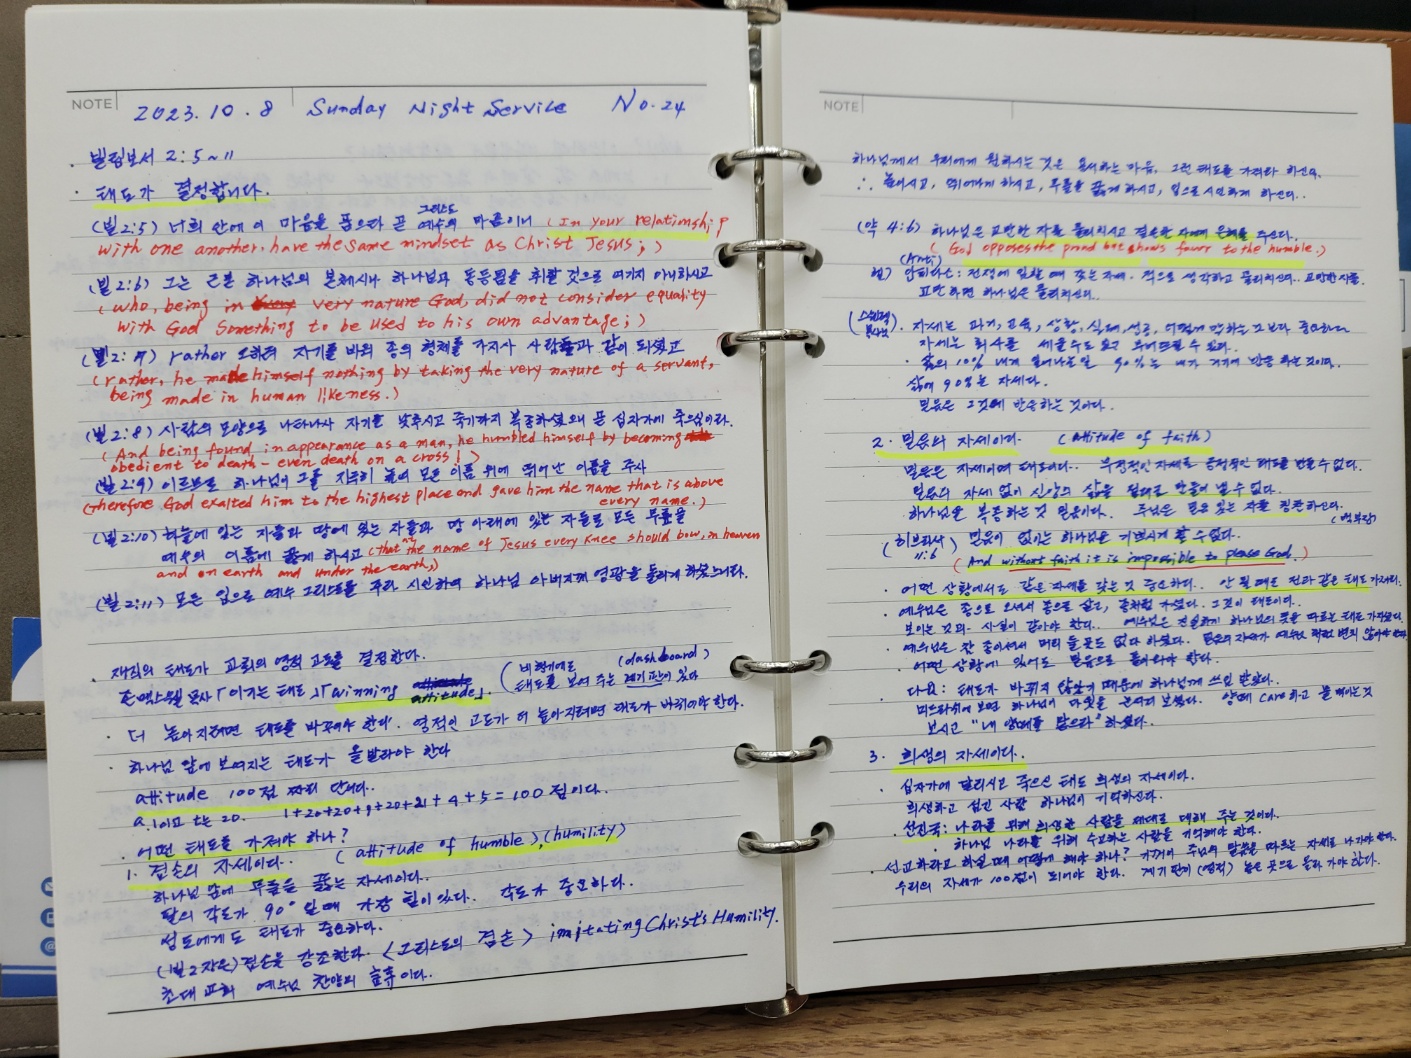 NOTE
2023. 10. 8 Sunday Night Service No. 24
· 빌립보서 2:5~11
· 태도가 결정합니다.
(빌2:5) 너희 안에 이 마음을 품으라 곧 그리스도 예수의 마음이니 (In your relationship
with one another, have the same mindset as Christ Jesus;)
(빌2:6) 그는 근본 하나님의 본체시나 하나님과 동등됨을 취할 것으로 여기지 아니하시고
(who, being in very nature God, did not consider equality
with God something to be used to his own advantage;)
(빌2:7) rather 오히려 자기를 비워 종의 형체를 가지사 사람들과 같이 되셨고
(rather, he made himself nothing by taking the very nature of a servant,
being made in human likeness.)
(빌2:8) 사람의 모양으로 나타나사 자기를 낮추시고 죽기까지 복종하셨으니 곧 십자가에 죽으심이라.
(And being found in appearance as a man, he humbled himself by becoming
obedient to death - even death on a cross!)
(빌2:9) 이르므로 하나님이 그를 지극히 높여 모든 이름 위에 뛰어난 이름을 주사
(Therefore God exalted him to the highest place and gave him the name that is above
every name.)
(빌2:10) 하늘에 있는 자들과 땅에 있는 자들과 땅 아래에 있는 자들로 모든 무릎을
예수의 이름에 꿇게 하시고 (that at the name of Jesus every knee should bow, in heaven
and on earth and under the earth,)
(빌2:11) 모든 입으로 예수 그리스도를 주라 시인하여 하나님 아버지께 영광을 돌리게 하셨느니라.
· 태도가 교회의 영적 고도를 결정한다.
존 맥스웰 목사 「이기는 태도」 「winning attitude」 (비행기에도 (dashboard)
태도를 보여 주는 계기판이 있다
· 더 높아지려면 태도를 바꾸어야 한다. 영적인 고도가 더 높아지려면 태도가 바뀌어야 한다.
· 하나님 앞에 보여지는 태도가 올발라야 한다
attitude 100점 짜리 단어다.
a. 1이고 t는 20. 1+20+20+9+20+21+4+5=100 점이다.
· 어떤 태도를 가져야 하나?
1. 겸손의 자세이다. (attitude of humble), (humility)
하나님 앞에 무릎을 꿇는 자세이다.
팔의 각도가 90° 일때 가장 힘이 있다. 각도가 중요하다.
성도에게도 태도가 중요하다.
(빌2장은) 겸손을 강조한다. <그리스도의 겸손> imitating Christ's Humility.
초대 교회 예수님 찬양의 교훈이다.
NOTE
하나님께서 우리에게 원하시는 것은 용서하는 마음, 그런 태도를 가져라 하신다.
∴ 높이시고, 뛰어나게 하시고, 무릎을 꿇게 하시고, 입으로 시인하게 하신다..
(약 4:6) 하나님은 교만한 자를 물리치시고 겸손한 자에게 은혜를 주신다.
(God opposes the proud but shows favor to the humble.)
(Anti)
헬) 안티타스: 전쟁에 임할 때 갖는 자세. 적으로 생각하고 물리치신다.. 교만한 자를.
교만하면 하나님은 물리치신다..
· 자세는 과거, 교육, 상황, 실패, 성공, 어떻게 말하는 그 보다 중요하다
자세는 회사를 세울수도 있고 무너뜨릴 수 있다.
· 삶의 10%는 내게 일어나는 일 90%는 내가 거기에 반응 하는 것이다.
삶에 90%는 자세다.
믿음은 그것에 반응하는 것이다.
2. 믿음의 자세이다. (attitude of faith)
믿음은 자세이며 태도이다.. 부정적인 자세로 긍정적인 태도를 만들 수 없다.
믿음의 자세 없이 신앙의 삶을 절대로 만들어 낼 수 없다.
하나님을 복종하는 것 믿음이다. 주님은 믿음 있는 자를 칭찬하신다.
(백부장)
(히브리서 11:6) 믿음이 없이는 하나님을 기쁘시게 할 수 없다.
(And without faith it is impossible to please God.)
· 어떤 상황에서도 같은 자세를 갖는 것 중요하다.. 안 될 때도 전과 같은 태도 가져라.
· 예수님은 종으로 오셔서 종으로 살고, 종처럼 가셨다. 그것이 태도이다.
보이는 것과 사실이 같아야 한다.. 예수님은 진실하게 하나님의 뜻을 따르는 태도 가지셨다.
· 예수님은 잔 종이셔서 머리 둘 곳도 없다 하셨다. 믿음의 자세가 예수님 처럼 변치 않아야 한다
· 어떤 상황에 있어도 믿음으로 돌아와야 한다.
다윗: 태도가 바뀌지 않았기 때문에 하나님께 쓰임 받았다.
양떼 care하고 돌보는것
보시고 "내 양떼를 맡으라" 하셨다.
3. 희생의 자세이다.
· 십자가에 달리시고 죽으신 태도 희생의 자세이다.
희생하고 섬긴 사람 하나님이 기억하신다.
· 선진국: 나라를 위해 희생한 사람을 제대로 대해 주는 것이다.
· 하나님 나라를 위해 수고하는 사람을 기억해야 한다.
· 선교하라고 하실 때 어떻게 해야 하나? 기꺼이 주님의 말씀을 따르는 자세로 나가야 한다.
우리의 자세가 100점이 되어야 한다. 계기판이 (영적) 높은 곳으로 올라 가야 한다.